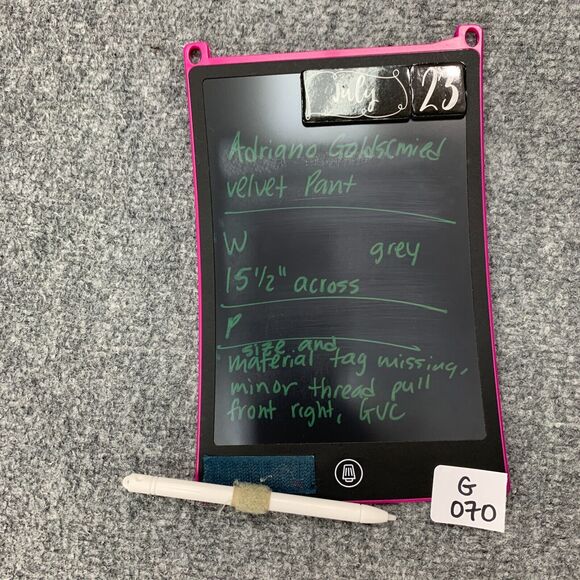 July 23
Adriano Goldscmied
velvet Pant
W grey
15 1/2" across
P
size and
material tag missing,
minor thread pull
front right, GVC
G
070